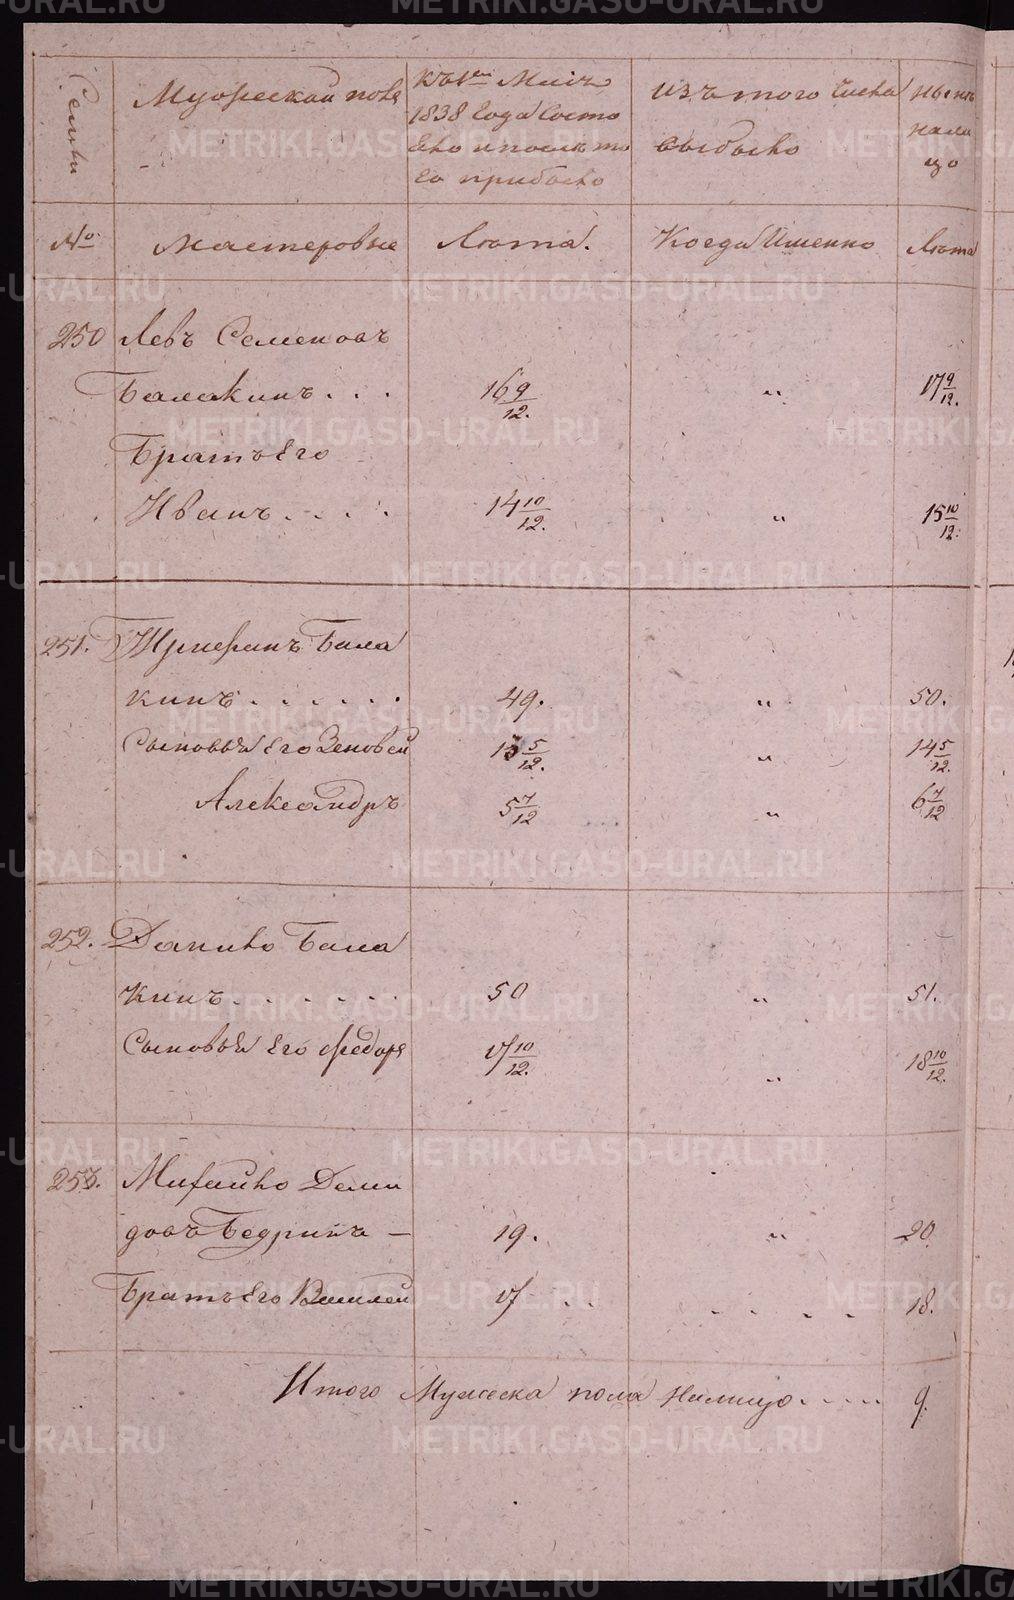 Семьи
Мужескай полъ
Къ 1е Маія
1838 Года Состо
яло и послѣ то
го прибыло
Изъ того Числа
выбыло
Нынѣ
нали
цо
№
Мастеровые
Лѣта.
Когда Именно
Лѣта
250 Левъ Семеновъ
Балакинъ . . . 16 9/12. " 17 9/12.
Братъ Его
Иванъ . . . . 14 10/12. " 15 10/12.
251. Бала
кинъ . . . . . . 49. " 50.
Сыновья Его Зеновей 13 5/12. " 14 5/12.
Александръ 5 7/12 " 6 7/12
252. Данило Бала
кинъ . . . . . . 50 " 51.
Сыновья Его Федоръ 17 10/12. " 18 10/12.
253. Михайло Деми
довъ Бедринъ — 19. " 20.
Братъ Его Василей 17 . . . . . . 18.
Итого Мужеска пола Налицо . . . . . 9.
METRIKI.GASO-URAL.RU